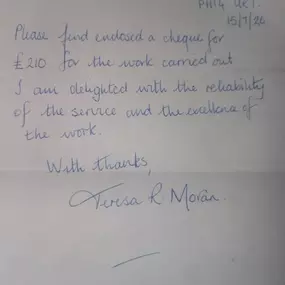 PH14 QRT.
15/7/20
Please find enclosed a cheque for
£210 for the work carried out
I am delighted with the reliability
of the service and the excellence of
the work.
With thanks,
Teresa R Moran.